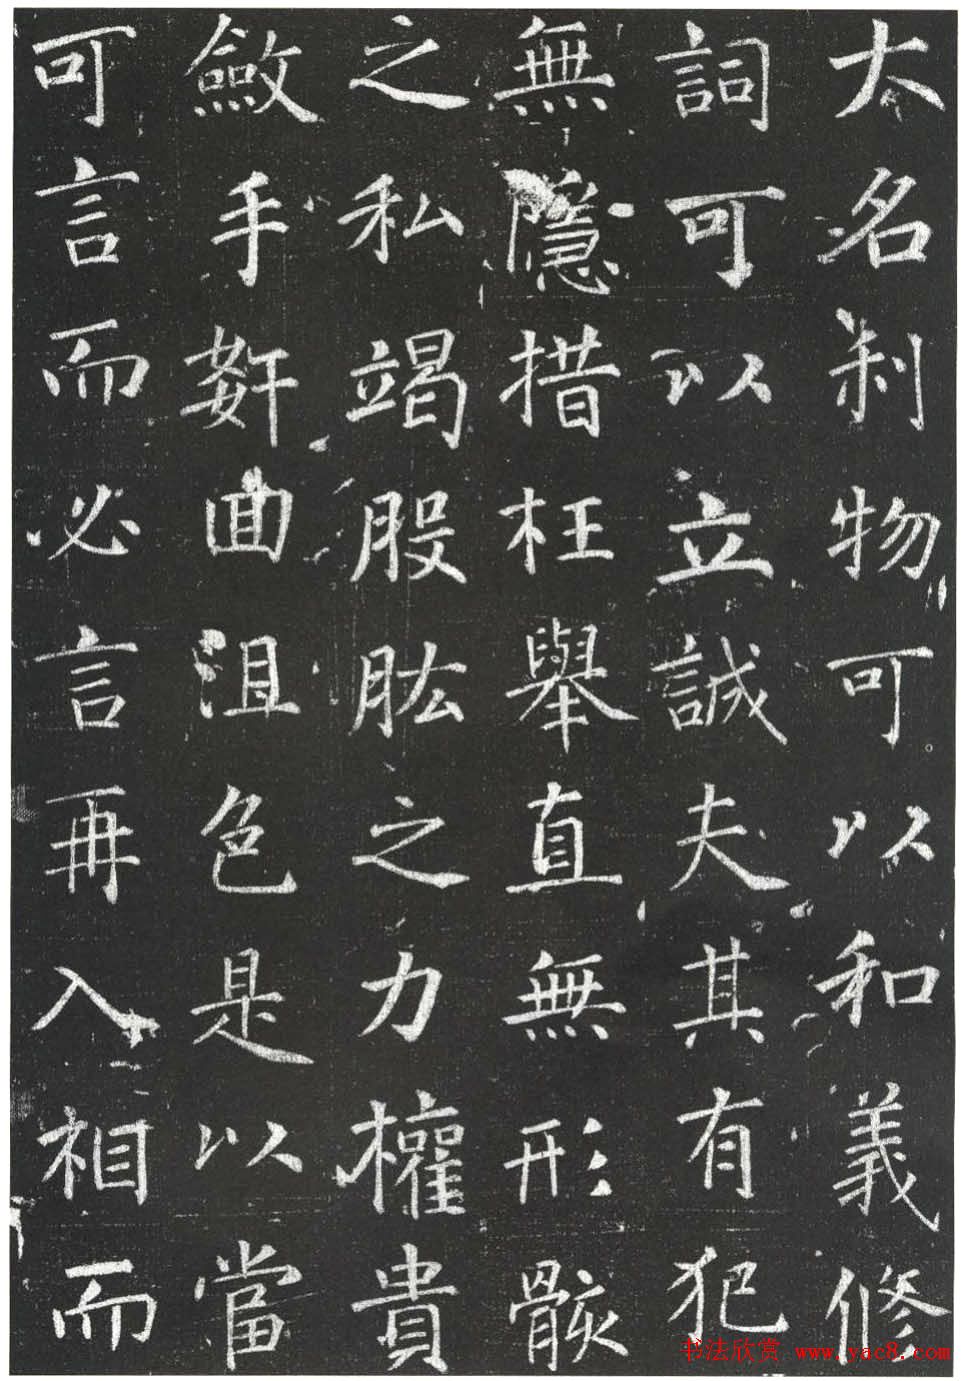 太名利物可以和義修
詞可以立誠夫其有犯
無隱措枉舉直無形骸
之私竭股肱之力權貴
斂手姧曲沮色是以當
可言而必言再入相而
书法欣赏 www.yac8.com